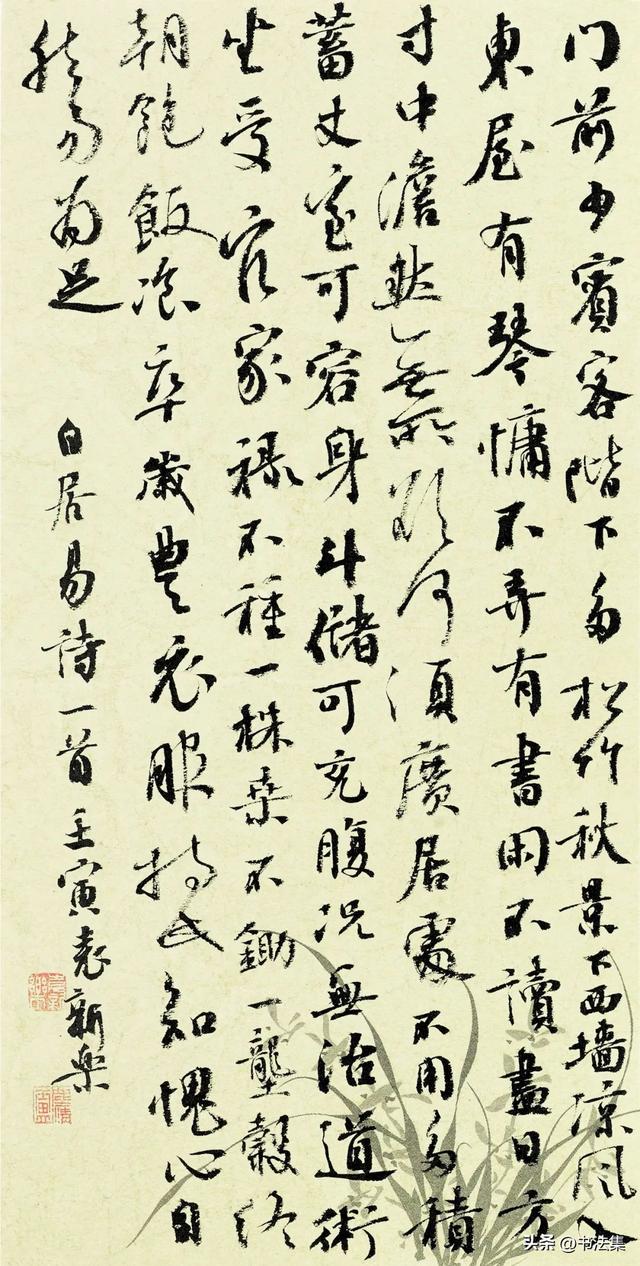 门前少賓客階下多松竹秋景下西墙凉風入
東屋有琴慵不弄有書閑不讀盡日方
寸中澹然無所欲何須廣居處不用多積
蓄丈室可容身斗儲可充腹况無治道術
坐受官家禄不種一株桑不鋤一壟穀終
朝飽飯飡卒歲豐衣服持此知愧心自
然易為足
白居易詩一首壬寅袁新樂
头条 @书法集